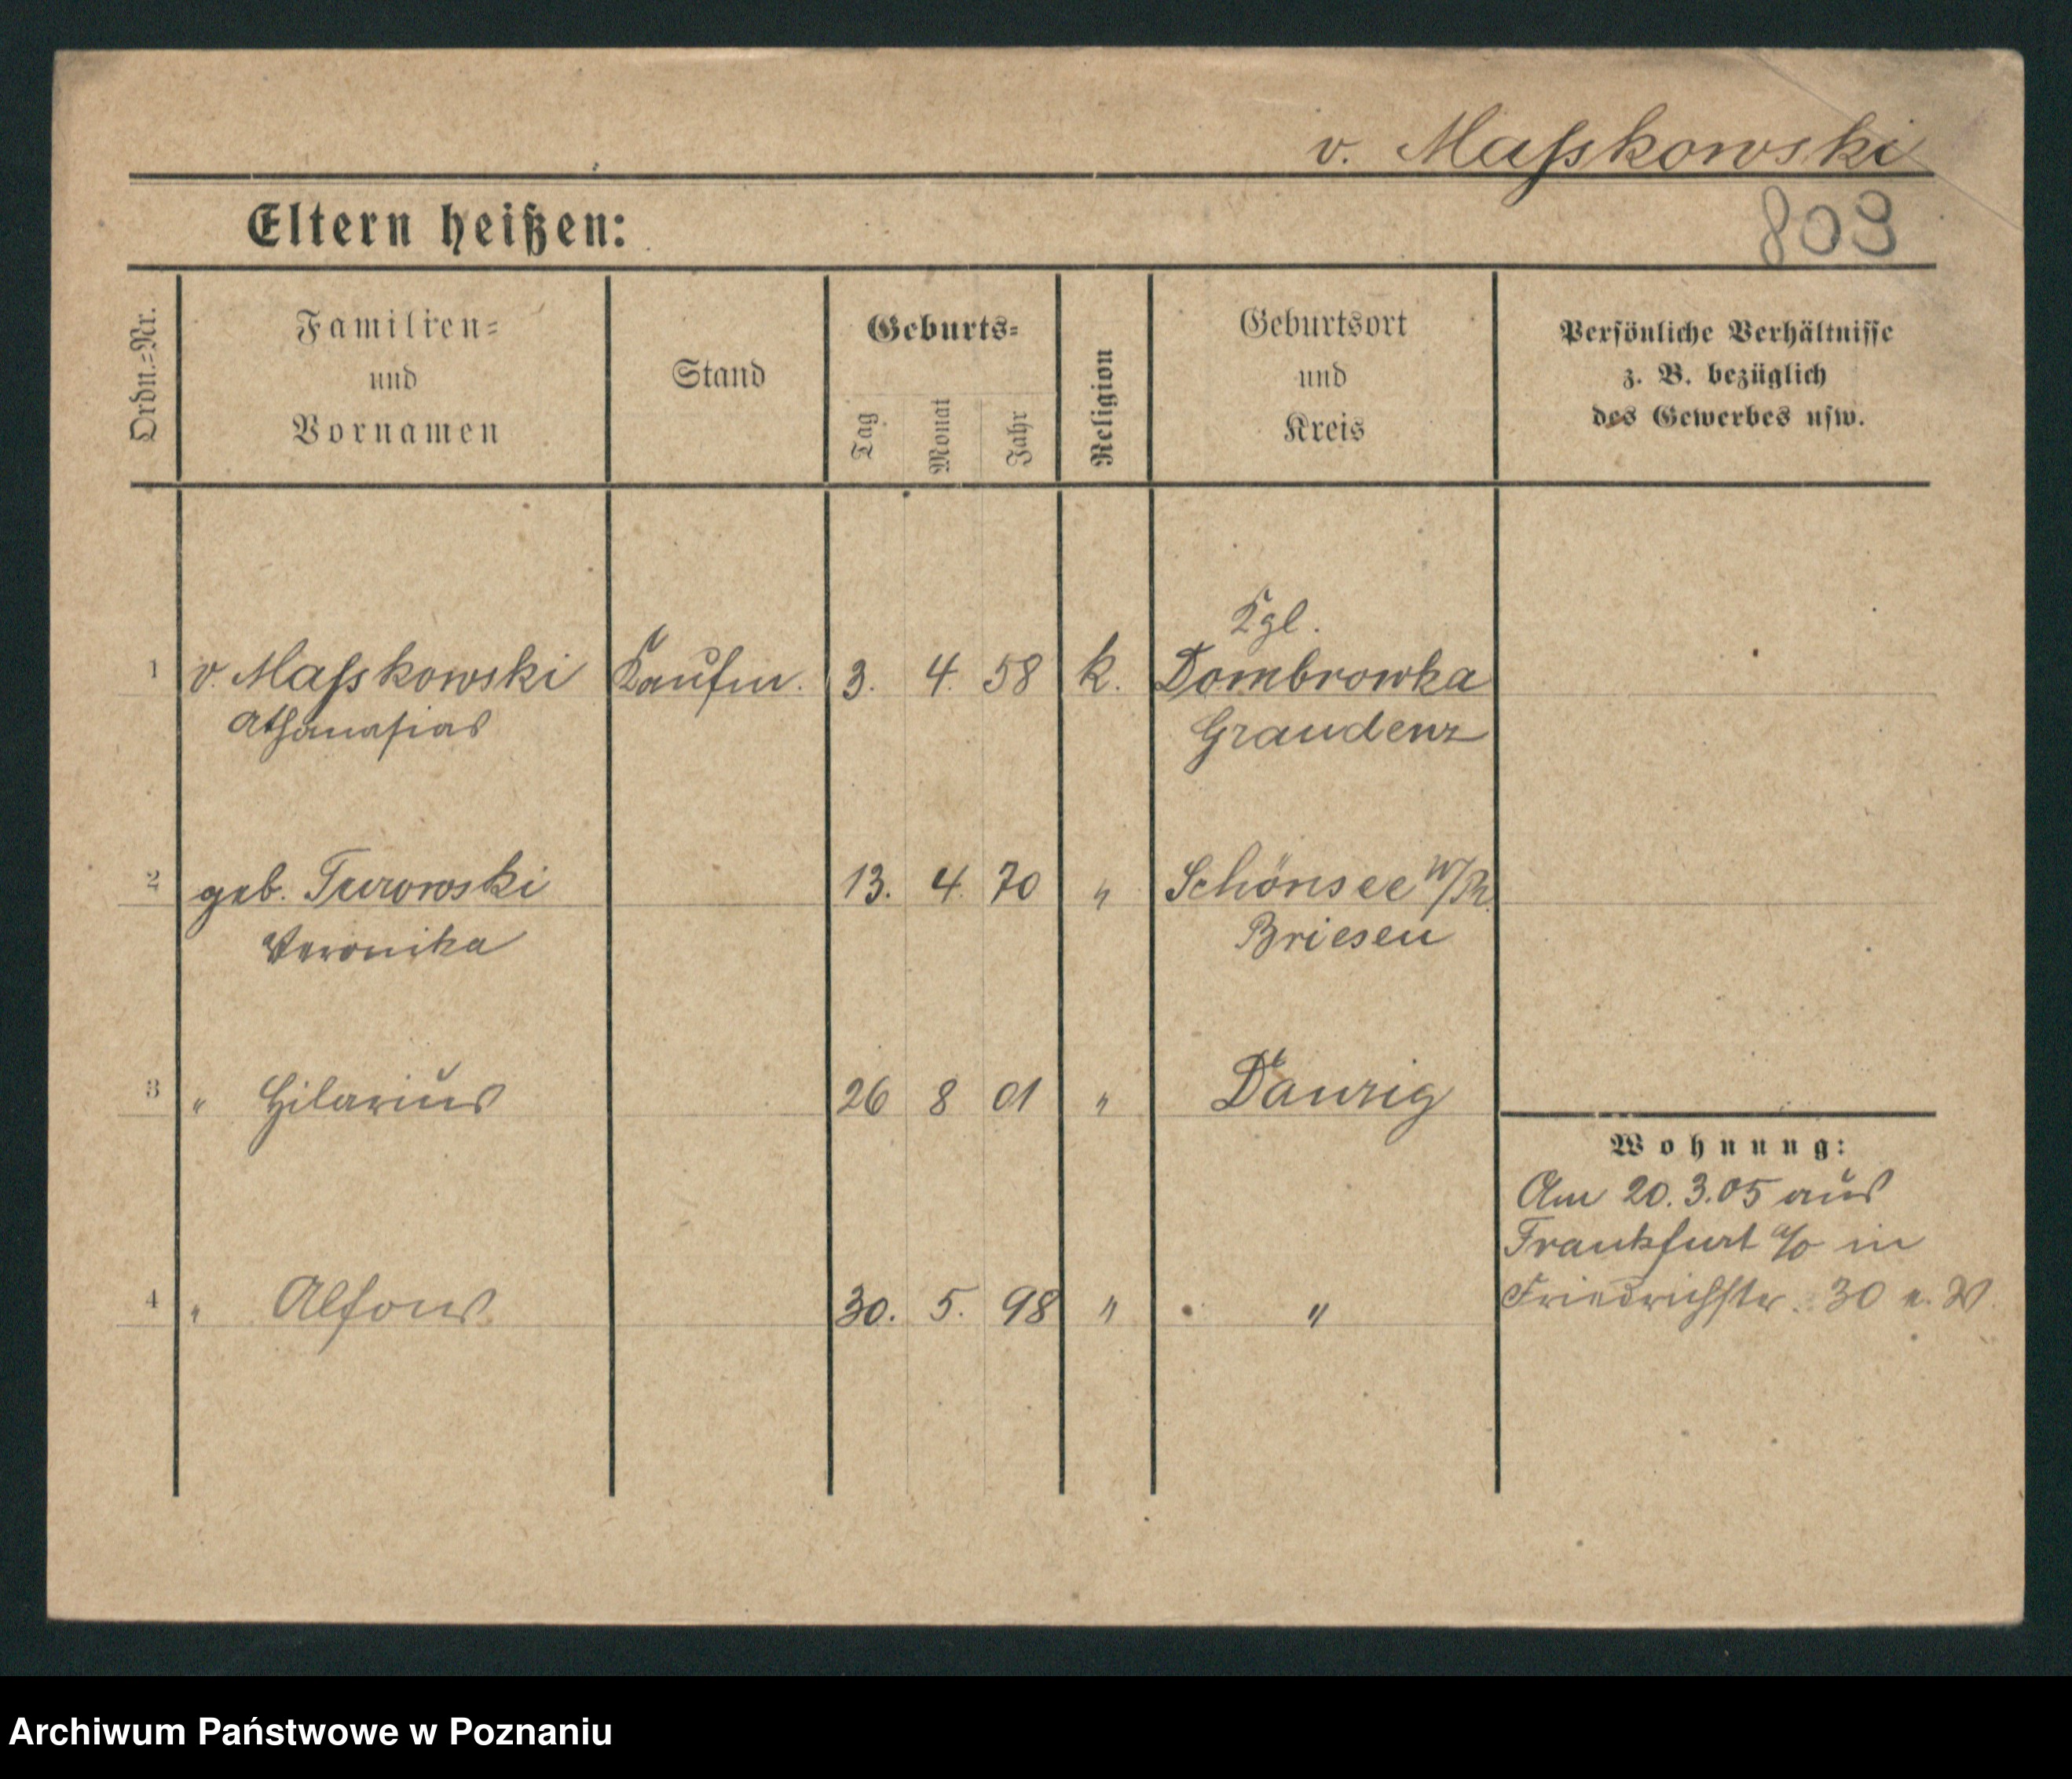 v. Maßkowski
803
Eltern heißen:
Ordn.=Nr.
Familien=
und
Vornamen
Stand
Geburts=
Tag
Monat
Jahr
Religion
Geburtsort
und
Kreis
Persönliche Verhältnisse
z. B. bezüglich
des Gewerbes usw.
Kgl.
1 v. Maßkowski Kaufm. 3. 4. 58 k. Dombrowka
Athanasias Graudenz
2 geb. Turowski 13. 4. 70 " Schönsee W/Pr.
Veronika Briesen
3 " Hilarius 26 8 01 " Danzig
Wohnung:
Am 20.3.05 aus
Frankfurt a/O in
4 " Alfons 30. 5. 98 " "
Friedrichstr. 30 b. W.
Archiwum Państwowe w Poznaniu